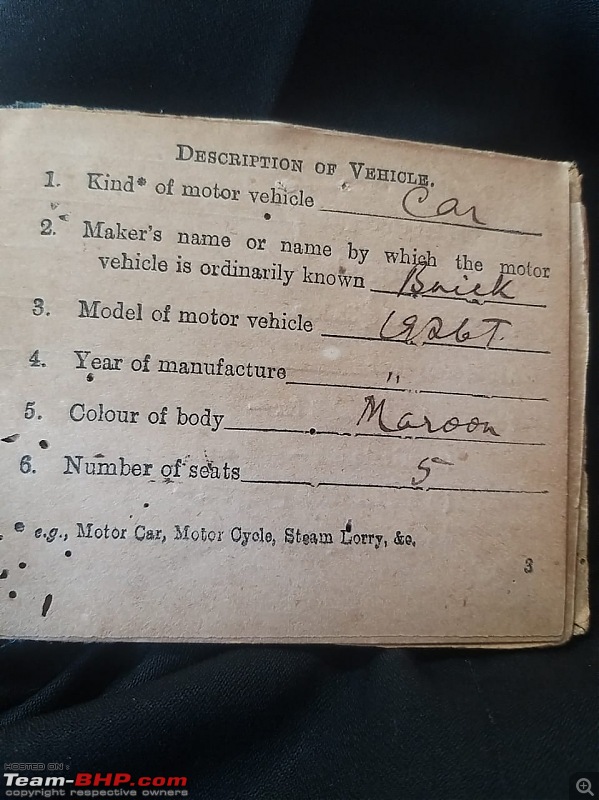 DESCRIPTION OF VEHICLE.
1. Kind* of motor vehicle Car
2. Maker's name or name by which the motor
vehicle is ordinarily known Buick
3. Model of motor vehicle 1926 T.
4. Year of manufacture "
5. Colour of body Maroon
6. Number of seats 5
* e.g., Motor Car, Motor Cycle, Steam Lorry, &c.
3
HOSTED ON :
Team-BHP.com
copyright respective owners